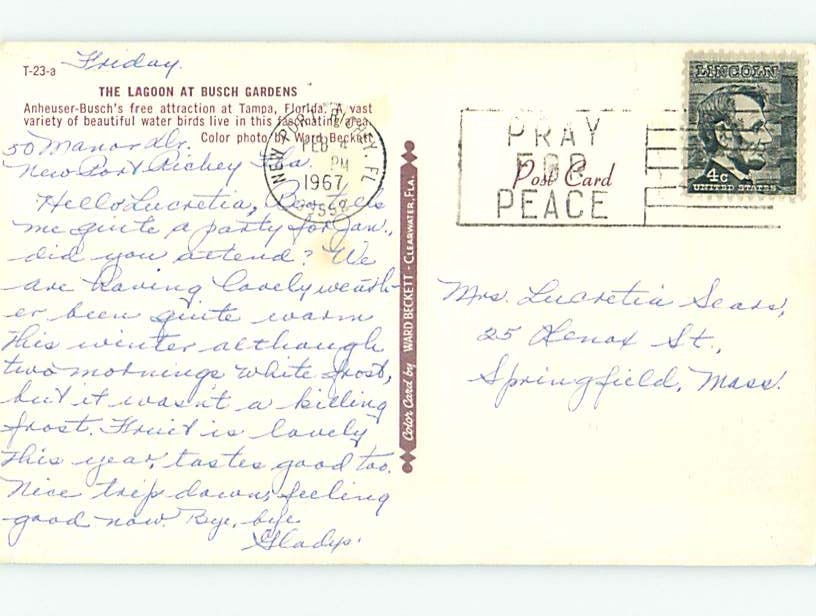 T-23-a
Friday.
THE LAGOON AT BUSCH GARDENS
Anheuser-Busch's free attraction at Tampa, Florida. A vast
variety of beautiful water birds live in this fascinating area.
Color photo by Ward Beckett
50 Manor Dr.
New Port Richey Fla.
Hello Lucretia, tells
me quite a party for Jan.,
did you attend? We
are having lovely weath-
er been quite warm
this winter although
two mornings white frost,
but it wasn't a killing
frost. Fruit is lovely
this year, tastes good too.
Nice trip down, feeling
good now. Bye, bye.
Gladys.
NEW PORT RICHEY, FL
FEB
PM
1967
Color Card by WARD BECKETT - CLEARWATER, FLA.
PRAY
FOR
PEACE
Post Card
LINCOLN
4c
UNITED STATES
Mrs. Lucretia Sears,
25 Lenox St.,
Springfield, Mass.